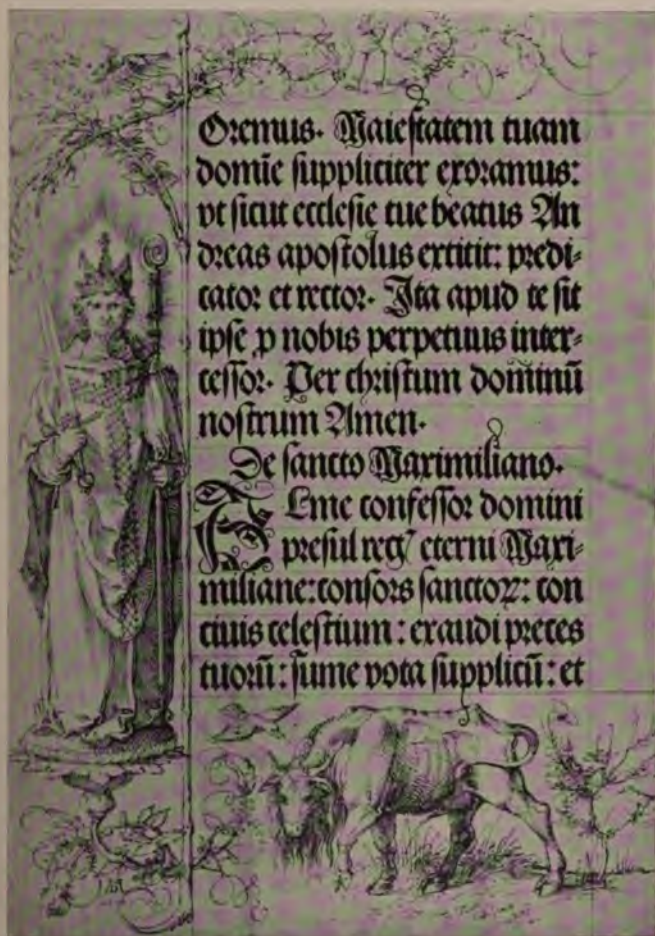 Oremus. Maiestatem tuam
domie suppliciter exoramus:
vt sicut ecclesie tue beatus An
dreas apostolus extitit: predi-
cator et rector. Ita apud te sit
ipse p nobis perpetuus inter-
cessor. Per christum dominū
nostrum Amen.
De sancto Maximiliano.
Alme confessor domini
presul regꝭ eterni Maxi-
miliane: consors sanctoꝝ: con
ciuis celestium: exaudi preces
tuorū: sume vota supplicū: et